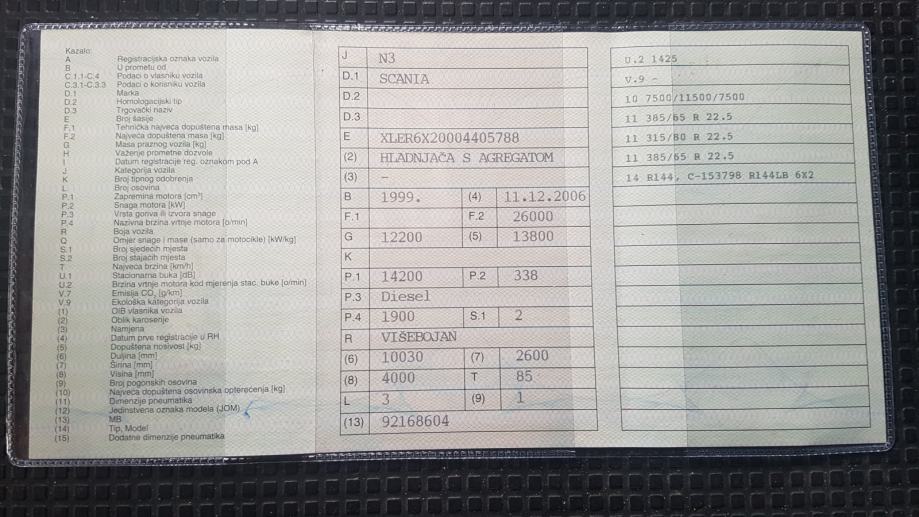 Kazalo:
A Registracijska oznaka vozila
B U prometu od
C.1.1-C.4 Podaci o vlasniku vozila
C.3.1-C.3.3 Podaci o korisniku vozila
D.1 Marka
D.2 Homologacijski tip
D.3 Trgovački naziv
E Broj šasije
F.1 Tehnička najveća dopuštena masa [kg]
F.2 Najveća dopuštena masa [kg]
G Masa praznog vozila [kg]
H Važenje prometne dozvole
I Datum registracije reg. oznakom pod A
J Kategorija vozila
K Broj tipnog odobrenja
L Broj osovina
P.1 Zapremina motora [cm³]
P.2 Snaga motora [kW]
P.3 Vrsta goriva ili izvora snage
P.4 Nazivna brzina vrtnje motora [o/min]
R Boja vozila
Q Omjer snage i mase (samo za motocikle) [kW/kg]
S.1 Broj sjedećih mjesta
S.2 Broj stajaćih mjesta
T Najveća brzina [km/h]
U.1 Stacionarna buka [dB]
U.2 Brzina vrtnje motora kod mjerenja stac. buke [o/min]
V.7 Emisija CO₂ [g/km]
V.9 Ekološka kategorija vozila
(1) OIB vlasnika vozila
(2) Oblik karoserije
(3) Namjena
(4) Datum prve registracije u RH
(5) Dopuštena nosivost [kg]
(6) Duljina [mm]
(7) Širina [mm]
(8) Visina [mm]
(9) Broj pogonskih osovina
(10) Najveća dopuštena osovinska opterećenja [kg]
(11) Dimenzije pneumatika
(12) Jedinstvena oznaka modela (JOM)
(13) MB
(14) Tip, Model
(15) Dodatne dimenzije pneumatika
J N3
D.1 SCANIA
D.2
D.3
E XLER6X20004405788
(2) HLADNJAČA S AGREGATOM
(3) –
B 1999. (4) 11.12.2006
F.1 F.2 26000
G 12200 (5) 13800
K
P.1 14200 P.2 338
P.3 Diesel
P.4 1900 S.1 2
R VIŠEBOJAN
(6) 10030 (7) 2600
(8) 4000 T 85
L 3 (9) 1
(13) 92168604
U.2 1425
V.9 -
10 7500/11500/7500
11 385/65 R 22.5
11 315/80 R 22.5
11 385/65 R 22.5
14 R144, C-153798 R144LB 6X2